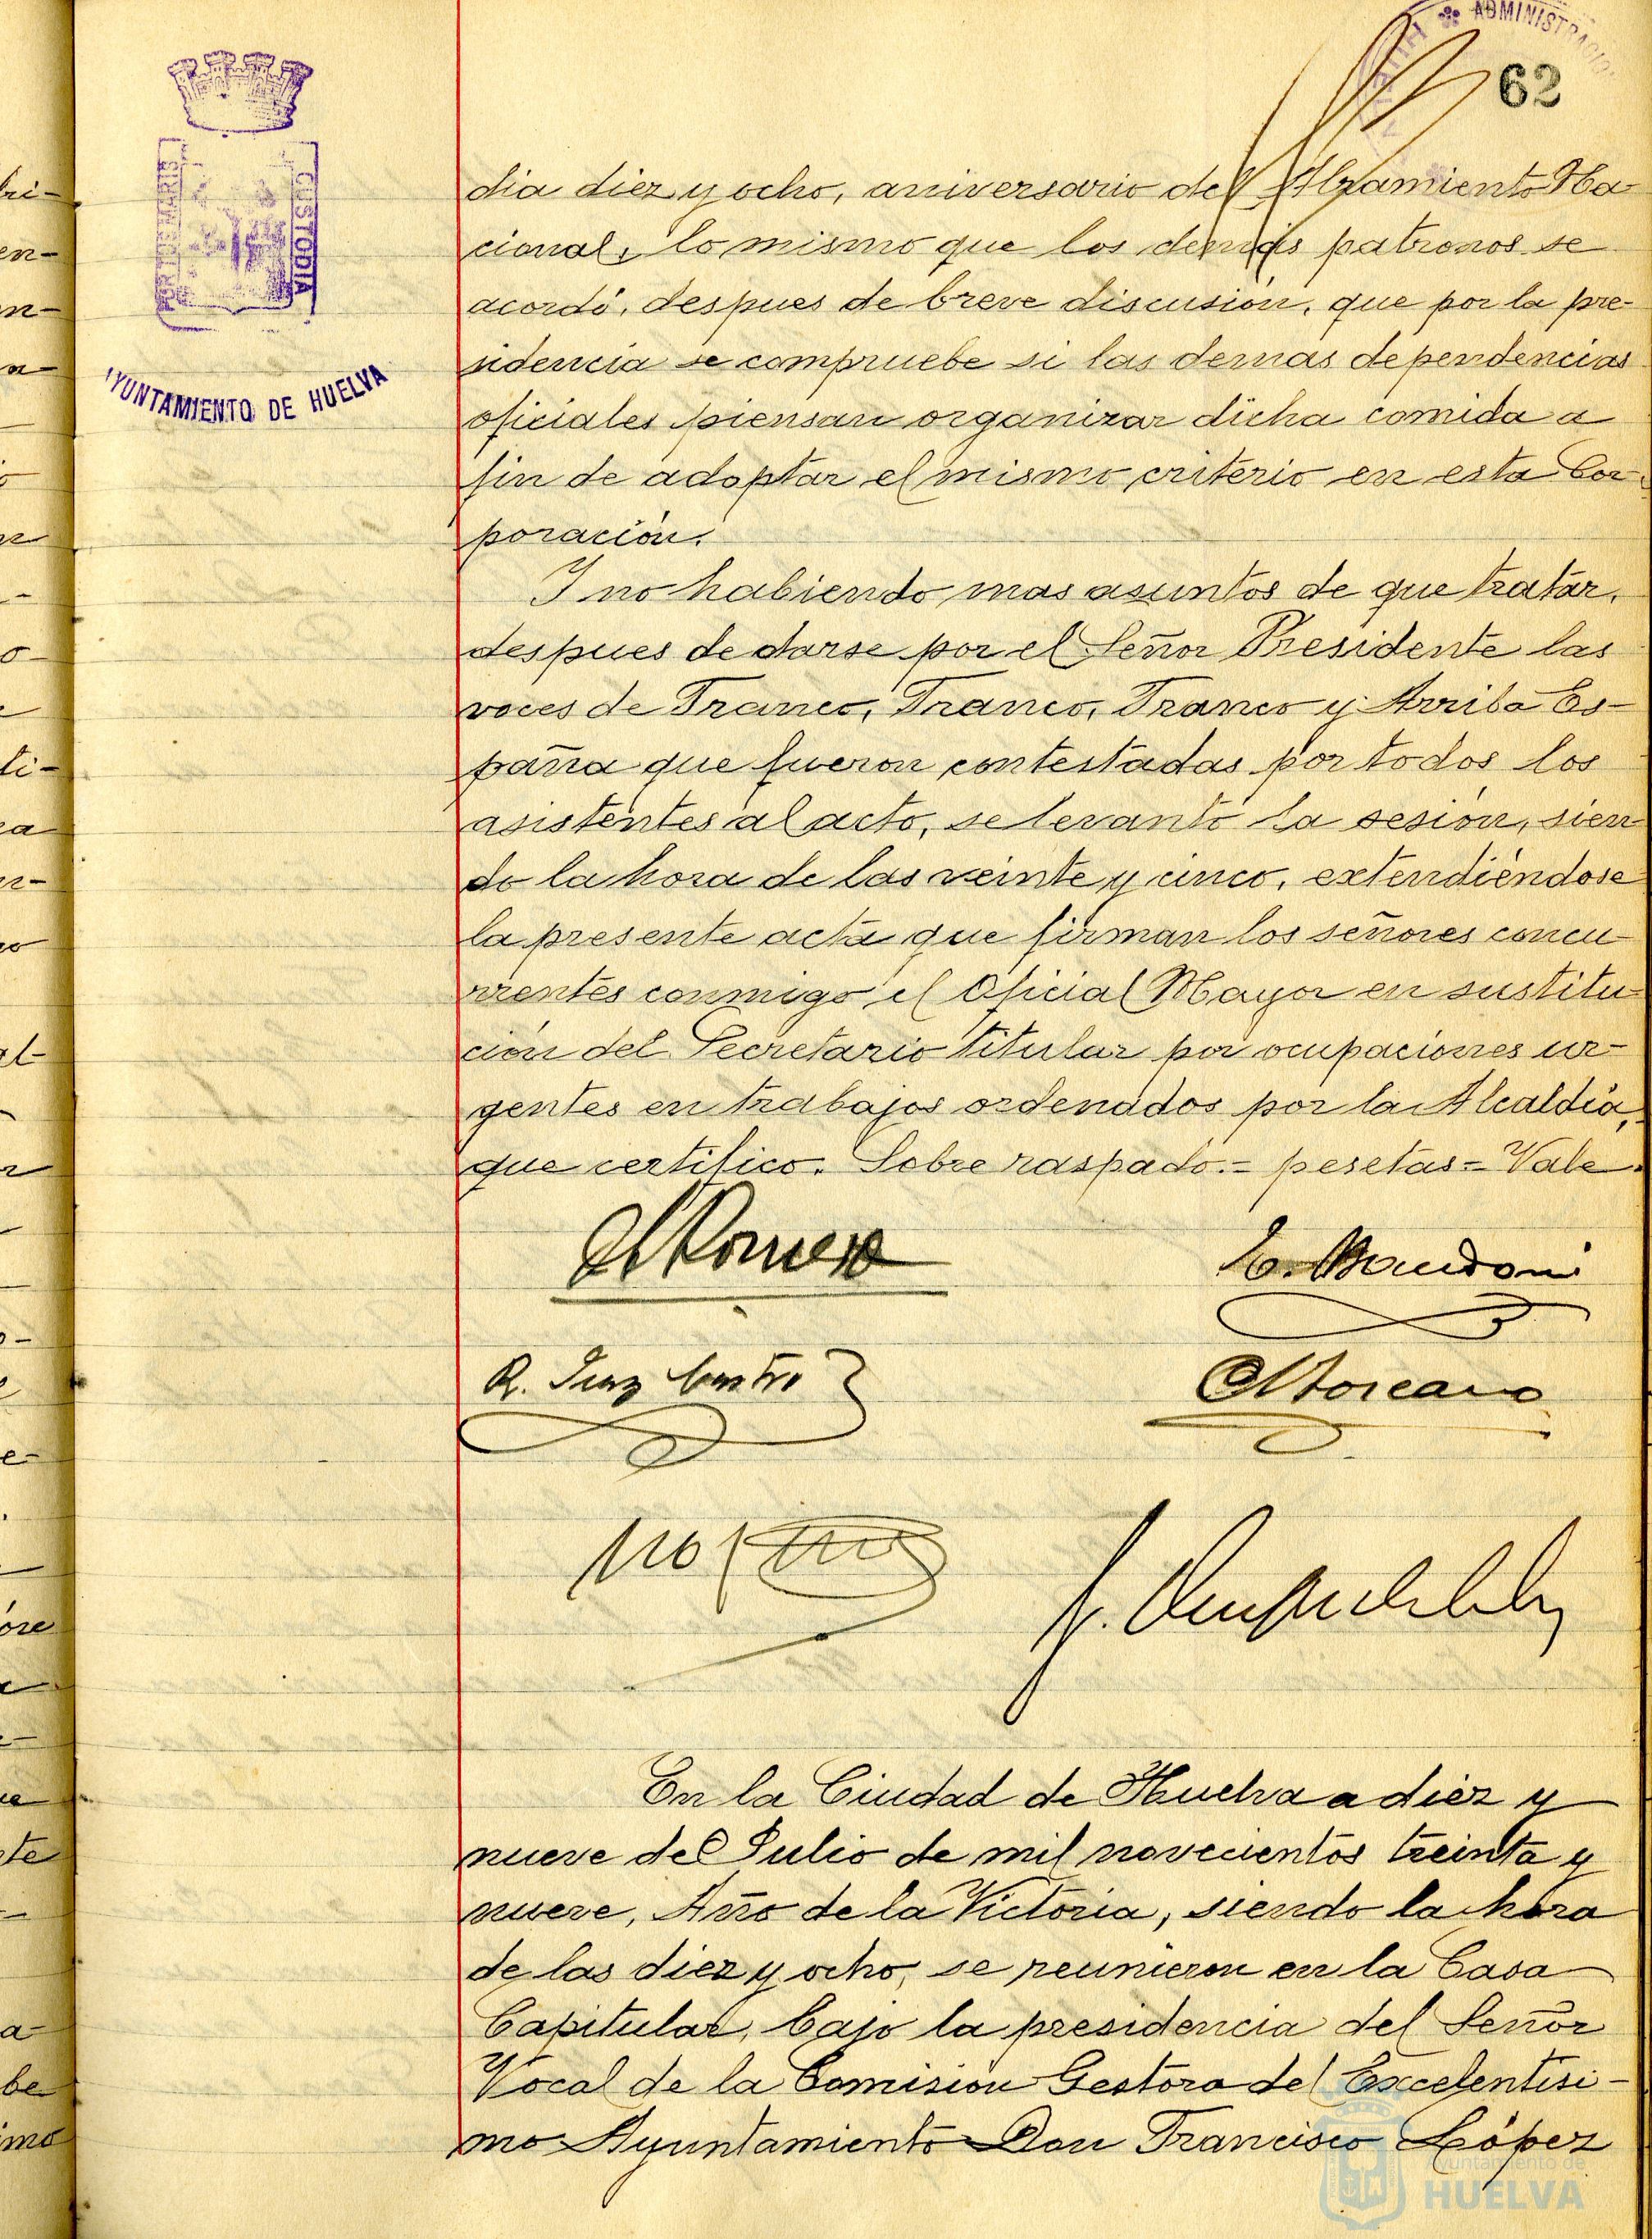 ADMINISTRACIO
62
PORTUS MARIS
CUSTODIA
AYUNTAMIENTO DE HUELVA
dia diez y ocho, aniversario del Alzamiento Na
cional, lo mismo que los demás patronos se
acordó, despues de breve discusión, que por la pre-
sidencia se compruebe si las demas dependencias
oficiales piensan organizar dicha comida a
fin de adoptar el mismo criterio en esta Cor-
poración.
Y no habiendo mas asuntos de que tratar,
despues de darse por el Señor Presidente las
voces de Franco, Franco, Franco y Arriba Es-
paña que fueron contestadas por todos los
asistentes al acto, se levantó la sesión, sien
do la hora de las veinte y cinco, extendiéndose
la presente acta que firman los señores concu-
rrentes conmigo el Oficial Mayor en sustitu-
ción del Secretario titular por ocupaciones ur-
gentes en trabajos ordenados por la Alcaldía,
que certifico. Sobre raspado.= pesetas= Vale.
Romero
R. Diaz Castro
En la Ciudad de Huelva a diez y
nueve de Julio de mil novecientos treinta y
nueve, Año de la Victoria, siendo la hora
de las diez y ocho, se reunieron en la Casa
Capitular, bajo la presidencia del Señor
Vocal de la Comisión Gestora del Excelentisi-
mo Ayuntamiento Don Francisco López
Ayuntamiento de
HUELVA